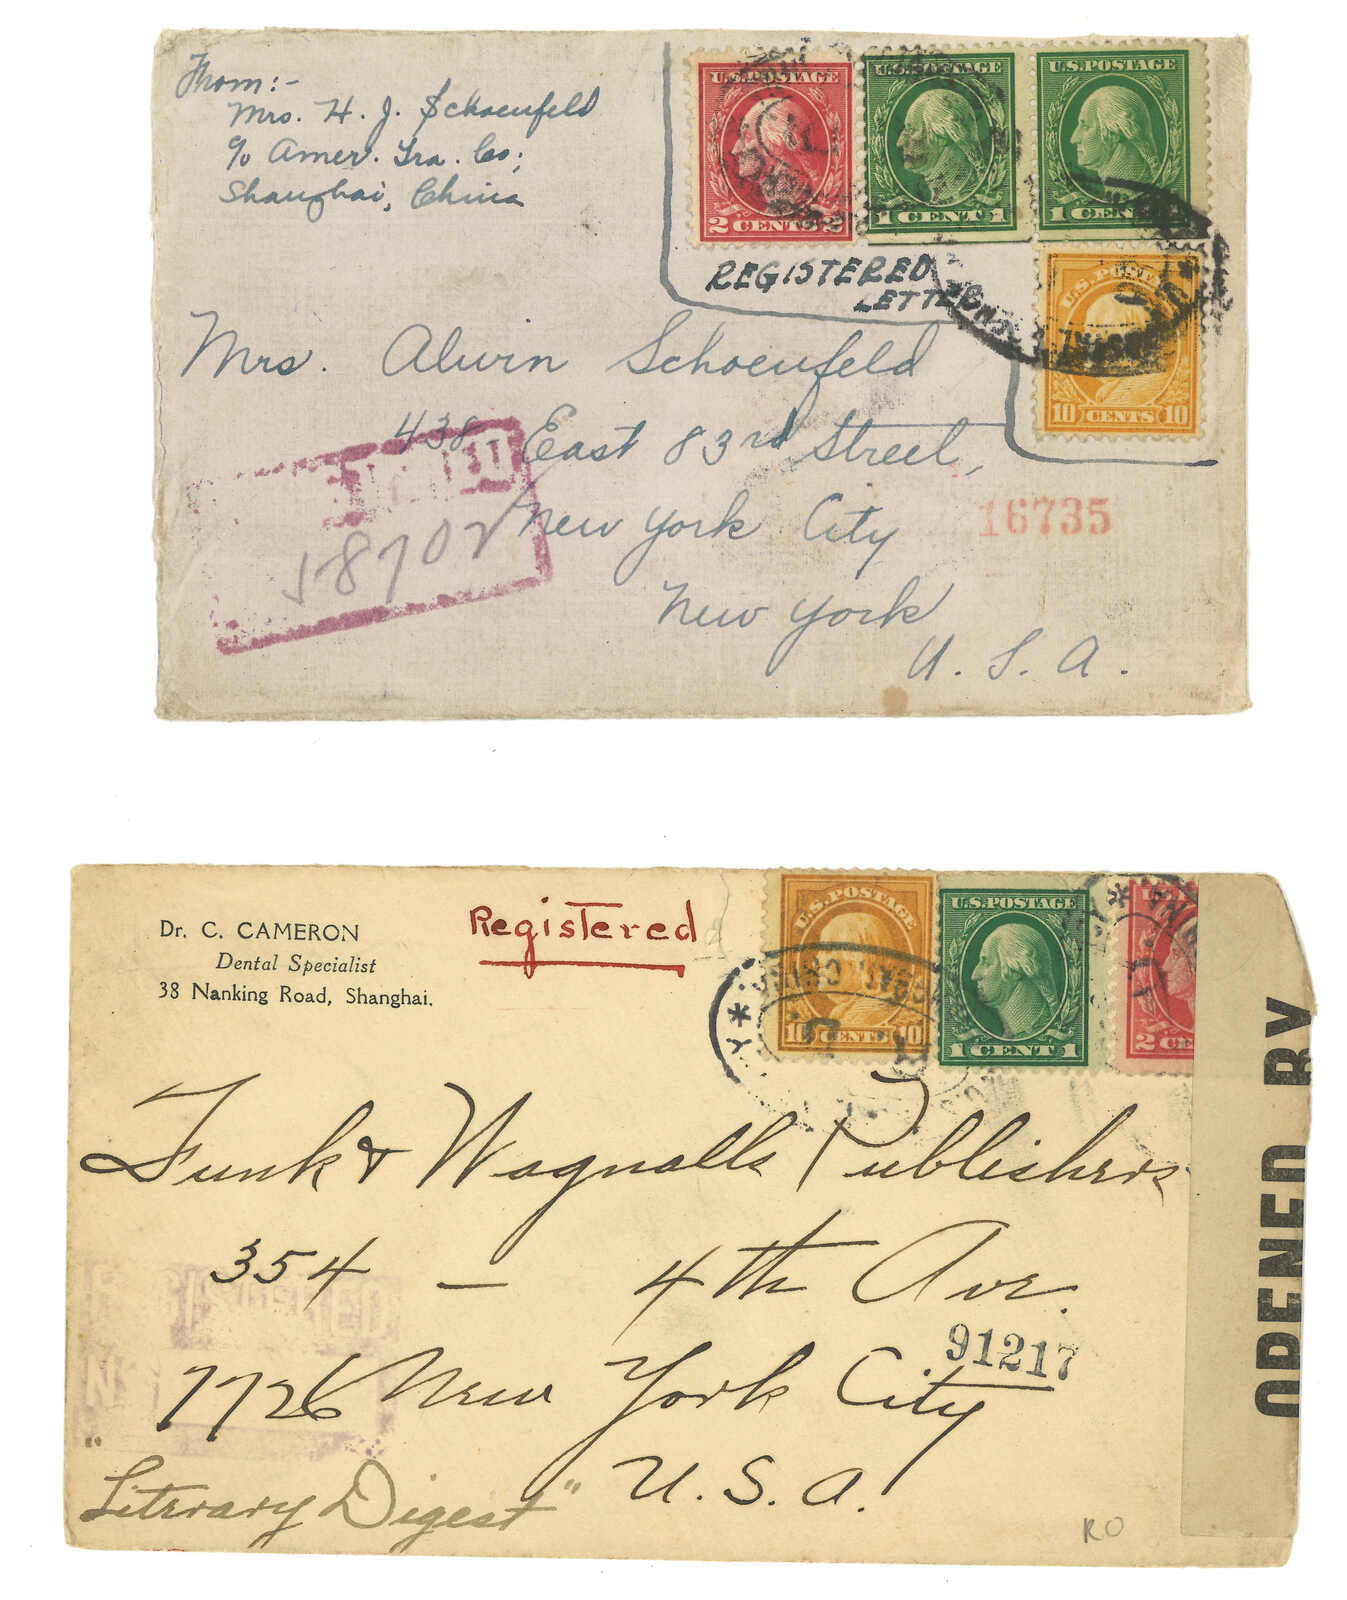 From:-
Mrs. H. J. Schoenfeld
c/o Amer. Tra. Co;
Shanghai, China
U.S. POSTAGE
2 CENTS 2
U.S. POSTAGE
1 CENT 1
U.S. POSTAGE
1 CENT 1
REGISTERED
LETTER
U.S. POSTAGE
10 CENTS 10
Mrs. Alwin Schoenfeld
438 East 83rd Street,
New York City
New York
U. S. A.
16735
58702
Dr. C. CAMERON
Dental Specialist
38 Nanking Road, Shanghai.
Registered
U.S. POSTAGE
10 CENTS 10
U.S. POSTAGE
1 CENT 1
2 CE
CHINA
OPENED BY
Funk & Wagnalls Publishers
354 - 4th Ave.
91217
7726 New York City
U. S. A.
"Literary Digest"
REGISTERED
RO